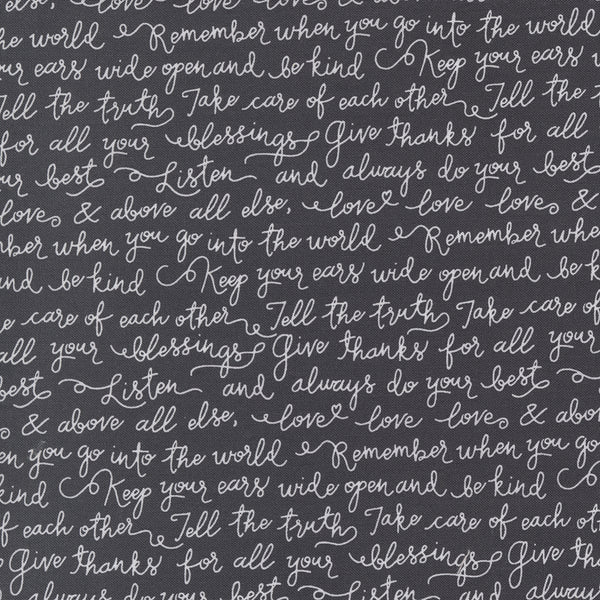 else, love love love
he world Remember when you go into the world
ur ears wide open and be kind Keep your ears
Tell the truth Take care of each other Tell the
for all your blessings Give thanks for all
ur best Listen and always do your best
love & above all else, love love love &
mber when you go into the world Remember whe
and be kind Keep your ears wide open and be k
e care of each other Tell the truth Take care of
all your blessings Give thanks for all your
best Listen and always do your best
& above all else, love love love & abov
en you go into the world Remember when you go
kind Keep your ears wide open and be kind
f each other Tell the truth Take care of each ot
Give thanks for all your blessings Give tha
always do your best Listen and always